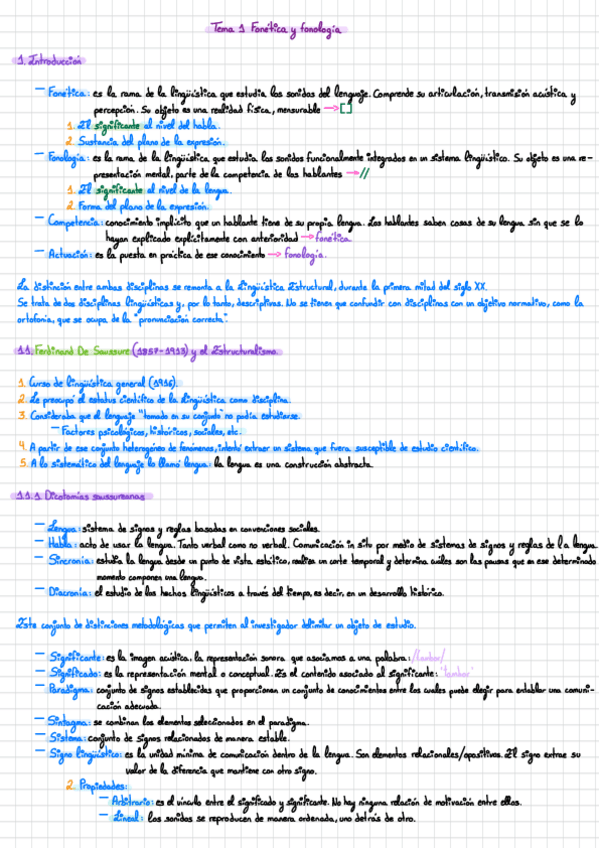 Tema 1 Fonética y fonología
1. Introducción
— Fonética: es la rama de la lingüística que estudia los sonidos del lenguaje. Comprende su articulación, transmisión acústica y
percepción. Su objeto es una realidad física, mensurable → []
1. El significante al nivel del habla.
2. Sustancia del plano de la expresión.
— Fonología: es la rama de la lingüística que estudia los sonidos funcionalmente integrados en un sistema lingüístico. Su objeto es una re-
presentación mental, parte de la competencia de los hablantes → //
1. El significante al nivel de la lengua.
2. Forma del plano de la expresión.
— Competencia: conocimiento implícito que un hablante tiene de su propia lengua. Los hablantes saben cosas de su lengua sin que se lo
hayan explicado explícitamente con anterioridad → fonética.
— Actuación: es la puesta en práctica de ese conocimiento → fonología.
La distinción entre ambas disciplinas se remonta a la Lingüística Estructural, durante la primera mitad del siglo XX.
Se trata de dos disciplinas lingüísticas y, por lo tanto, descriptivas. No se tienen que confundir con disciplinas con un objetivo normativo, como la
ortofonía, que se ocupa de la "pronunciación correcta".
1.1. Ferdinand De Saussure (1857-1913) y el Estructuralismo.
1. Curso de lingüística general (1916).
2. Le preocupó el estatus científico de la Lingüística como disciplina.
3. Consideraba que el lenguaje "tomado en su conjunto" no podía estudiarse.
— Factores psicológicos, históricos, sociales, etc.
4. A partir de ese conjunto heterogéneo de fenómenos, intentó extraer un sistema que fuera susceptible de estudio científico.
5. A lo sistemático del lenguaje lo llamó lengua: la lengua es una construcción abstracta.
1.1.1 Dicotomías saussureanas
— Lengua: sistema de signos y reglas basadas en convenciones sociales.
— Habla: acto de usar la lengua. Tanto verbal como no verbal. Comunicación in situ por medio de sistemas de signos y reglas de la lengua.
— Sincronía: estudia la lengua desde un punto de vista estático, realiza un corte temporal y determina cuáles son las pausas que en ese determinado
momento componen una lengua.
— Diacronía: el estudio de los hechos lingüísticos a través del tiempo, es decir, en un desarrollo histórico.
Este conjunto de distinciones metodológicas que permiten al investigador delimitar un objeto de estudio.
— Significante: es la imagen acústica, la representación sonora que asociamos a una palabra: /tambor/
— Significado: es la representación mental o conceptual. Es el contenido asociado al significante: 'tambor'
— Paradigma: conjunto de signos establecidos que proporcionan un conjunto de conocimientos entre los cuales puede elegir para entablar una comuni-
cación adecuada.
— Sintagma: se combinan los elementos seleccionados en el paradigma.
— Sistema: conjunto de signos relacionados de manera estable.
— Signo lingüístico: es la unidad mínima de comunicación dentro de la lengua. Son elementos relacionales/opositivos. El signo extrae su
valor de la diferencia que mantiene con otro signo.
2. Propiedades:
— Arbitrario: es el vínculo entre el significado y significante. No hay ninguna relación de motivación entre ellos.
— Lineal: los sonidos se reproducen de manera ordenada, uno detrás de otro.